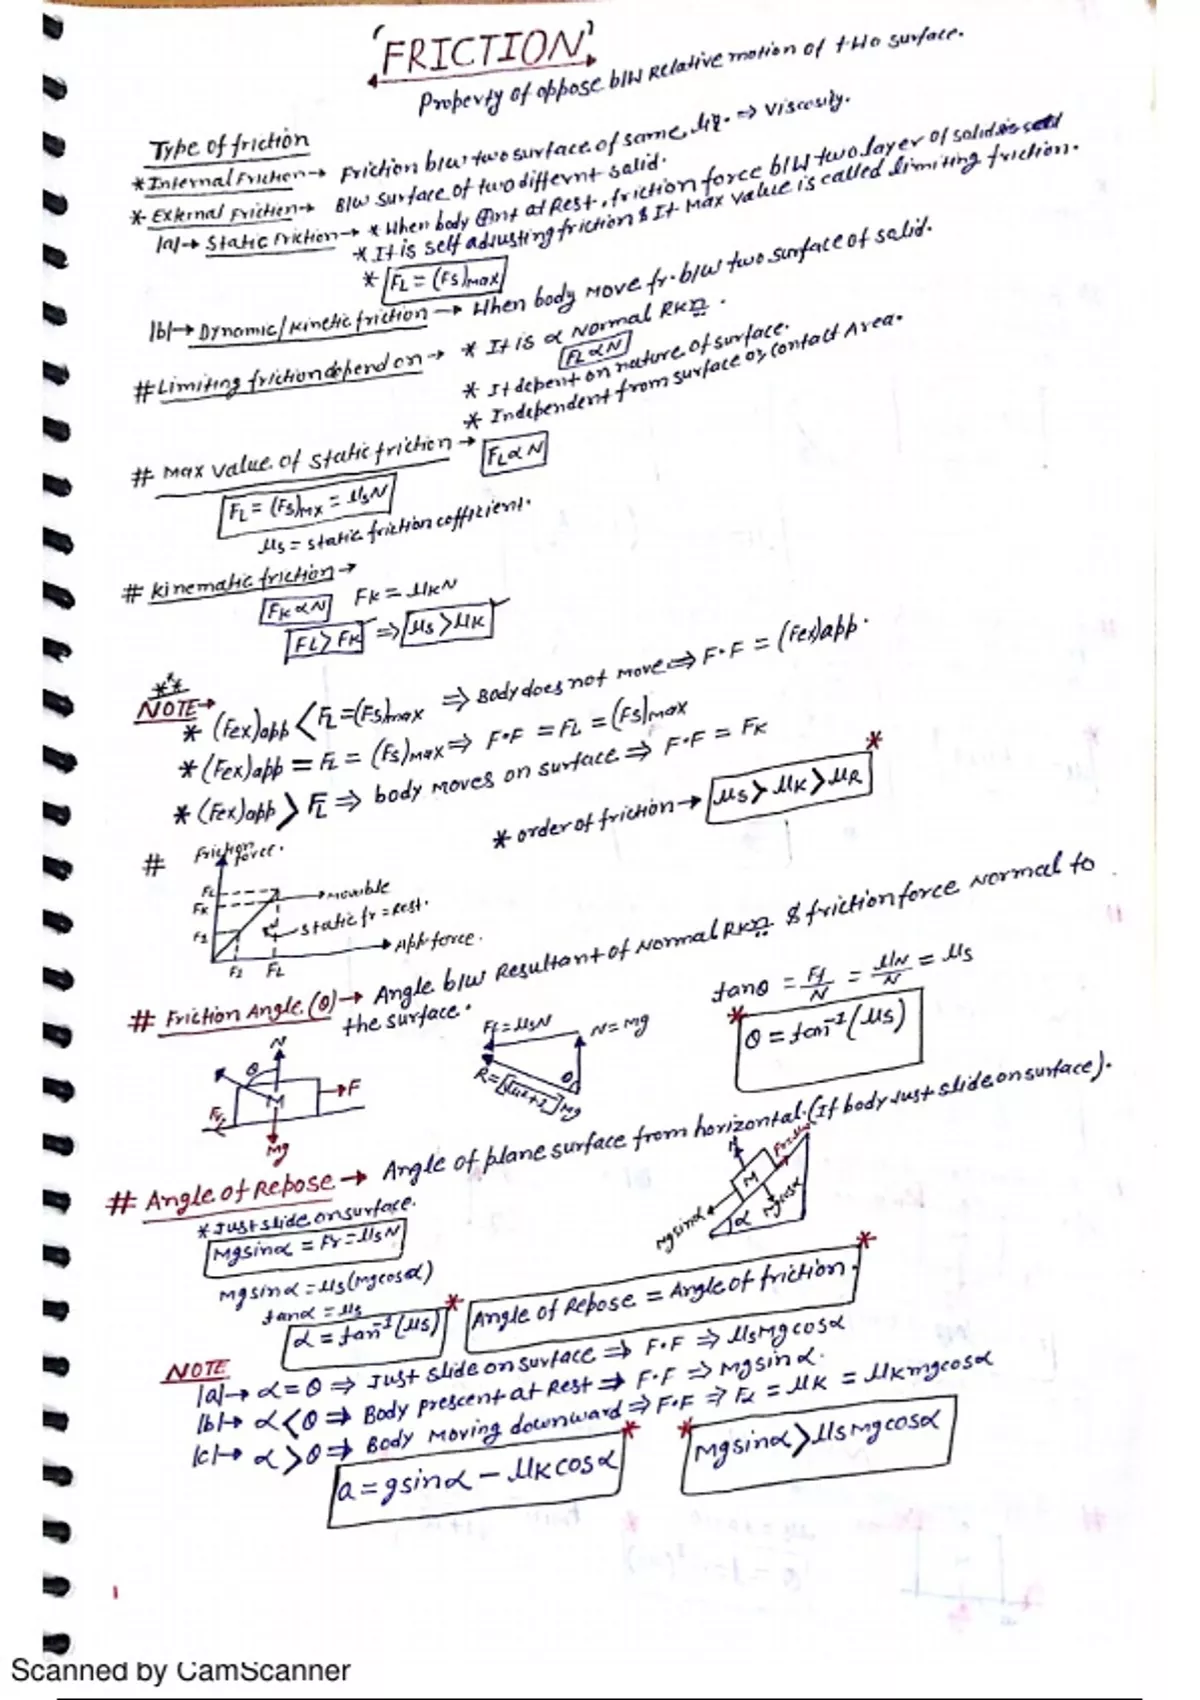 'FRICTION'
Property of oppose b/w Relative motion of two surface.
Type of friction
* Internal Friction → Friction b/w two surface of same liq. ⇒ Viscosity.
* External Friction → B/w surface of two differnt salid.
|a|→ Static Friction → * When body at Rest, friction force b/w two layer of solid is
* It is self adjusting friction & It Max value is called limiting friction.
* FL = (Fs)max
|b|→ Dynamic/Kinetic friction → When body Move fr. b/w two surface of salid.
# Limiting friction depend on → * It is α Normal Rxn.
FL α N
* It depent on nature of surface.
* Independent from surface or contact Area.
# Max value of static friction → FL α N
FL = (Fs)mx = μsN
μs = static friction cofficient.
# kinematic friction →
FK α N FK = μKN
FL > FK ⇒ μs > μK
***
NOTE →
* (Fex)app < FL = (Fs)max ⇒ Body does not move ⇒ F.F = (Fex)app.
* (Fex)app = FL = (Fs)max ⇒ F.F = FL = (Fs)max
* (Fex)app > FL ⇒ body moves on surface ⇒ F.F = FK
* order of friction → μs > μK > μR *
# Friction force.
FL → movible
FK
static fr = Rest.
F1
→ App. force.
F1 FL
# Friction Angle (θ) → Angle b/w Resultant of Normal Rxn & friction force Normal to
the surface.
tanθ = Ff/N = μN/N = μs
* θ = tan⁻¹(μs)
N
θ
M
F
Fr
Mg
Ff = μsN
N = Mg
θ
# Angle of Repose → Angle of plane surface from horizontal. (If body Just slide on surface).
* Just slide on surface.
Mgsinα = Fr = μsN
Mgsinα = μs(Mgcosα)
tanα = μs
α = tan⁻¹(μs) *
N
M
Mgsinα
α
Mgcosα
Angle of Repose = Angle of friction. *
NOTE
|a|→ α = θ ⇒ Just slide on surface ⇒ F.F ⇒ μsMgcosα
|b|→ α < θ ⇒ Body prescent at Rest ⇒ F.F ⇒ Mgsinα.
|c|→ α > θ ⇒ Body Moving downward ⇒ F.F ⇒ Fk = μK = μKmgcosα
a = gsinα − μKcosα *
* Mgsinα > μsMgcosα
1
Scanned by CamScanner